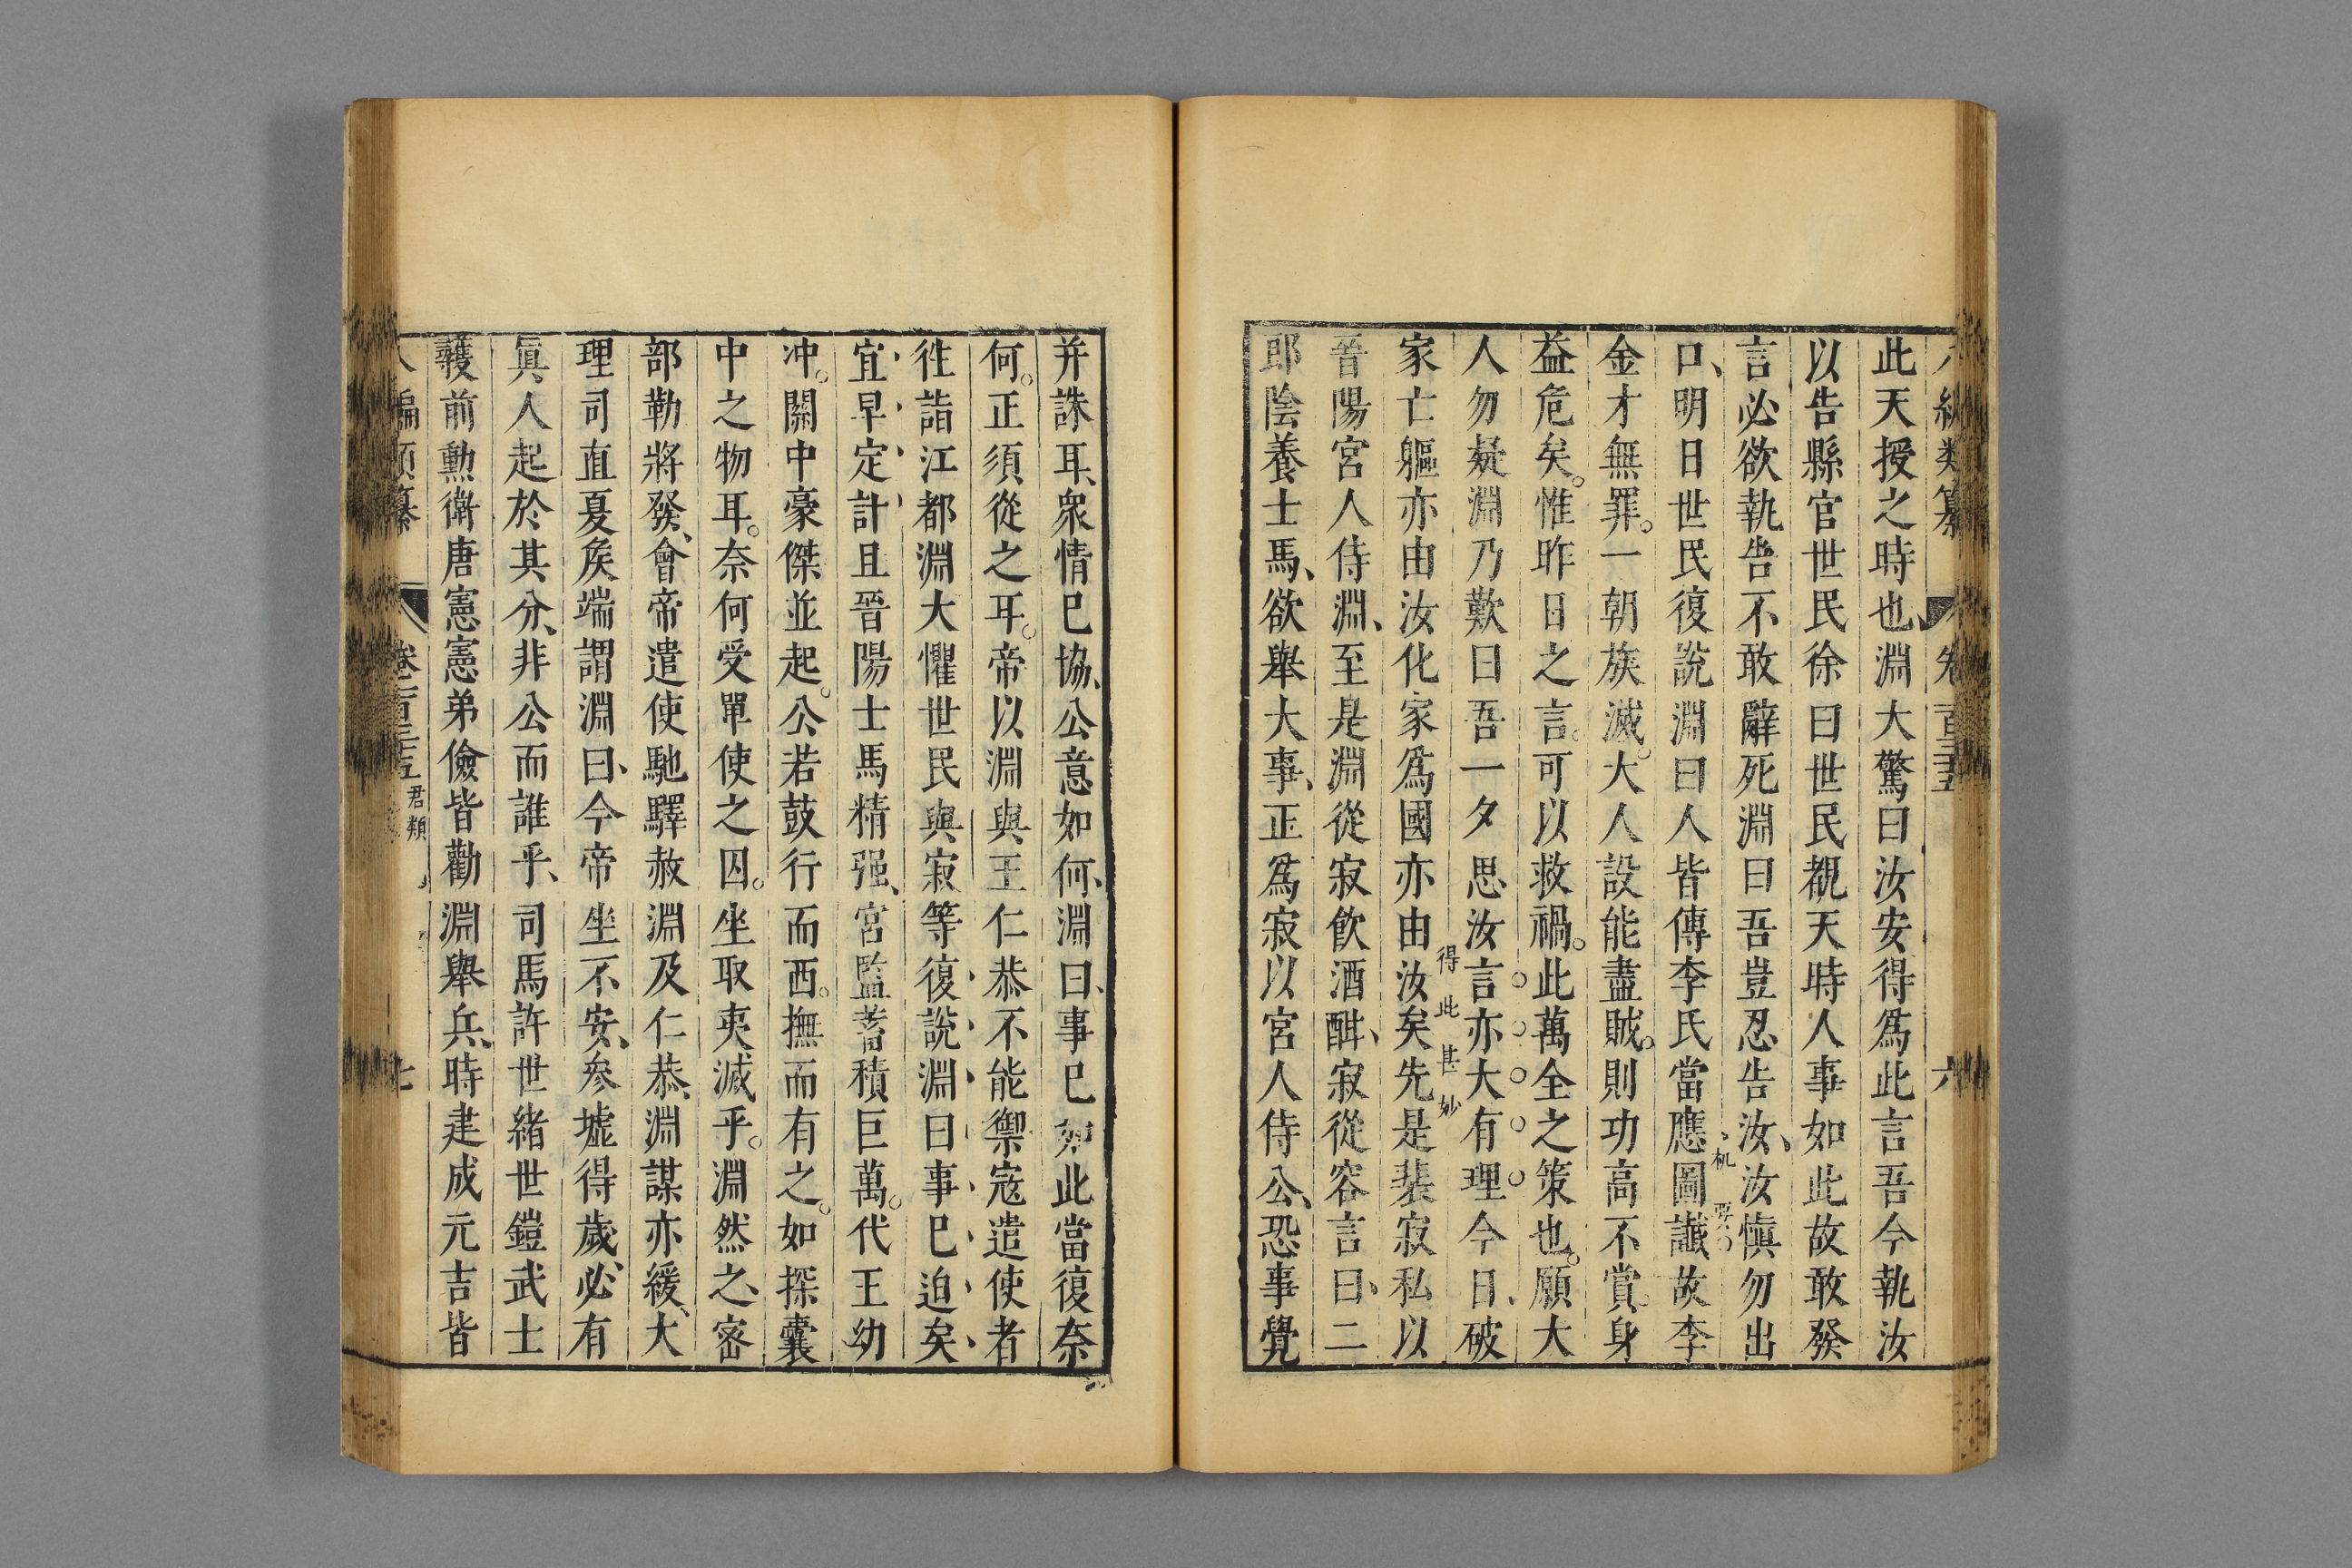 此天授之時也、淵大驚曰汝安得爲此言吾今執汝
以告縣官世民徐曰世民覩天時人事如此故敢發
言必欲執告不敢辭死淵曰吾豈忍告汝、汝愼勿出
口、明日世民復說淵曰人皆傳李氏當應圖讖故李
金才無罪。一朝族滅。大人設能盡賊。則功高不賞。身
益危矣。惟昨日之言。可以救禍。此萬全之策也。願大
人勿疑淵乃歎曰吾一夕思汝言亦大有理今日破
得此甚妙
家亡軀亦由汝化家爲國亦由汝矣先是裴寂私以
晉陽宮人侍淵、至是淵從寂飲酒酣、寂從容言曰、二
郎陰養士馬、欲舉大事、正爲寂以宮人侍公、恐事覺
并誅耳、衆情已協、公意如何、淵曰、事已如此當復奈
何。正須從之耳。帝以淵與王仁恭不能禦寇遣使者
徃詣江都淵大懼世民與寂等復說淵曰事已迫矣
宜早定計且晉陽士馬精强、宮監蓄積巨萬。代王幼
冲。關中豪傑並起。公若鼓行而西。撫而有之。如探囊
中之物耳。奈何受單使之囚。坐取夷滅乎。淵然之、密
部勒將發、會帝遣使馳驛赦淵及仁恭、淵謀亦緩、大
理司直夏矦端謂淵曰、今帝坐不安、參墟得歲、必有
眞人起於其分、非公而誰乎、司馬許世緒世鎧武士
彠前勳衛唐憲憲弟儉皆勸淵舉兵、時建成元吉皆
卷一百三十五 君類 七